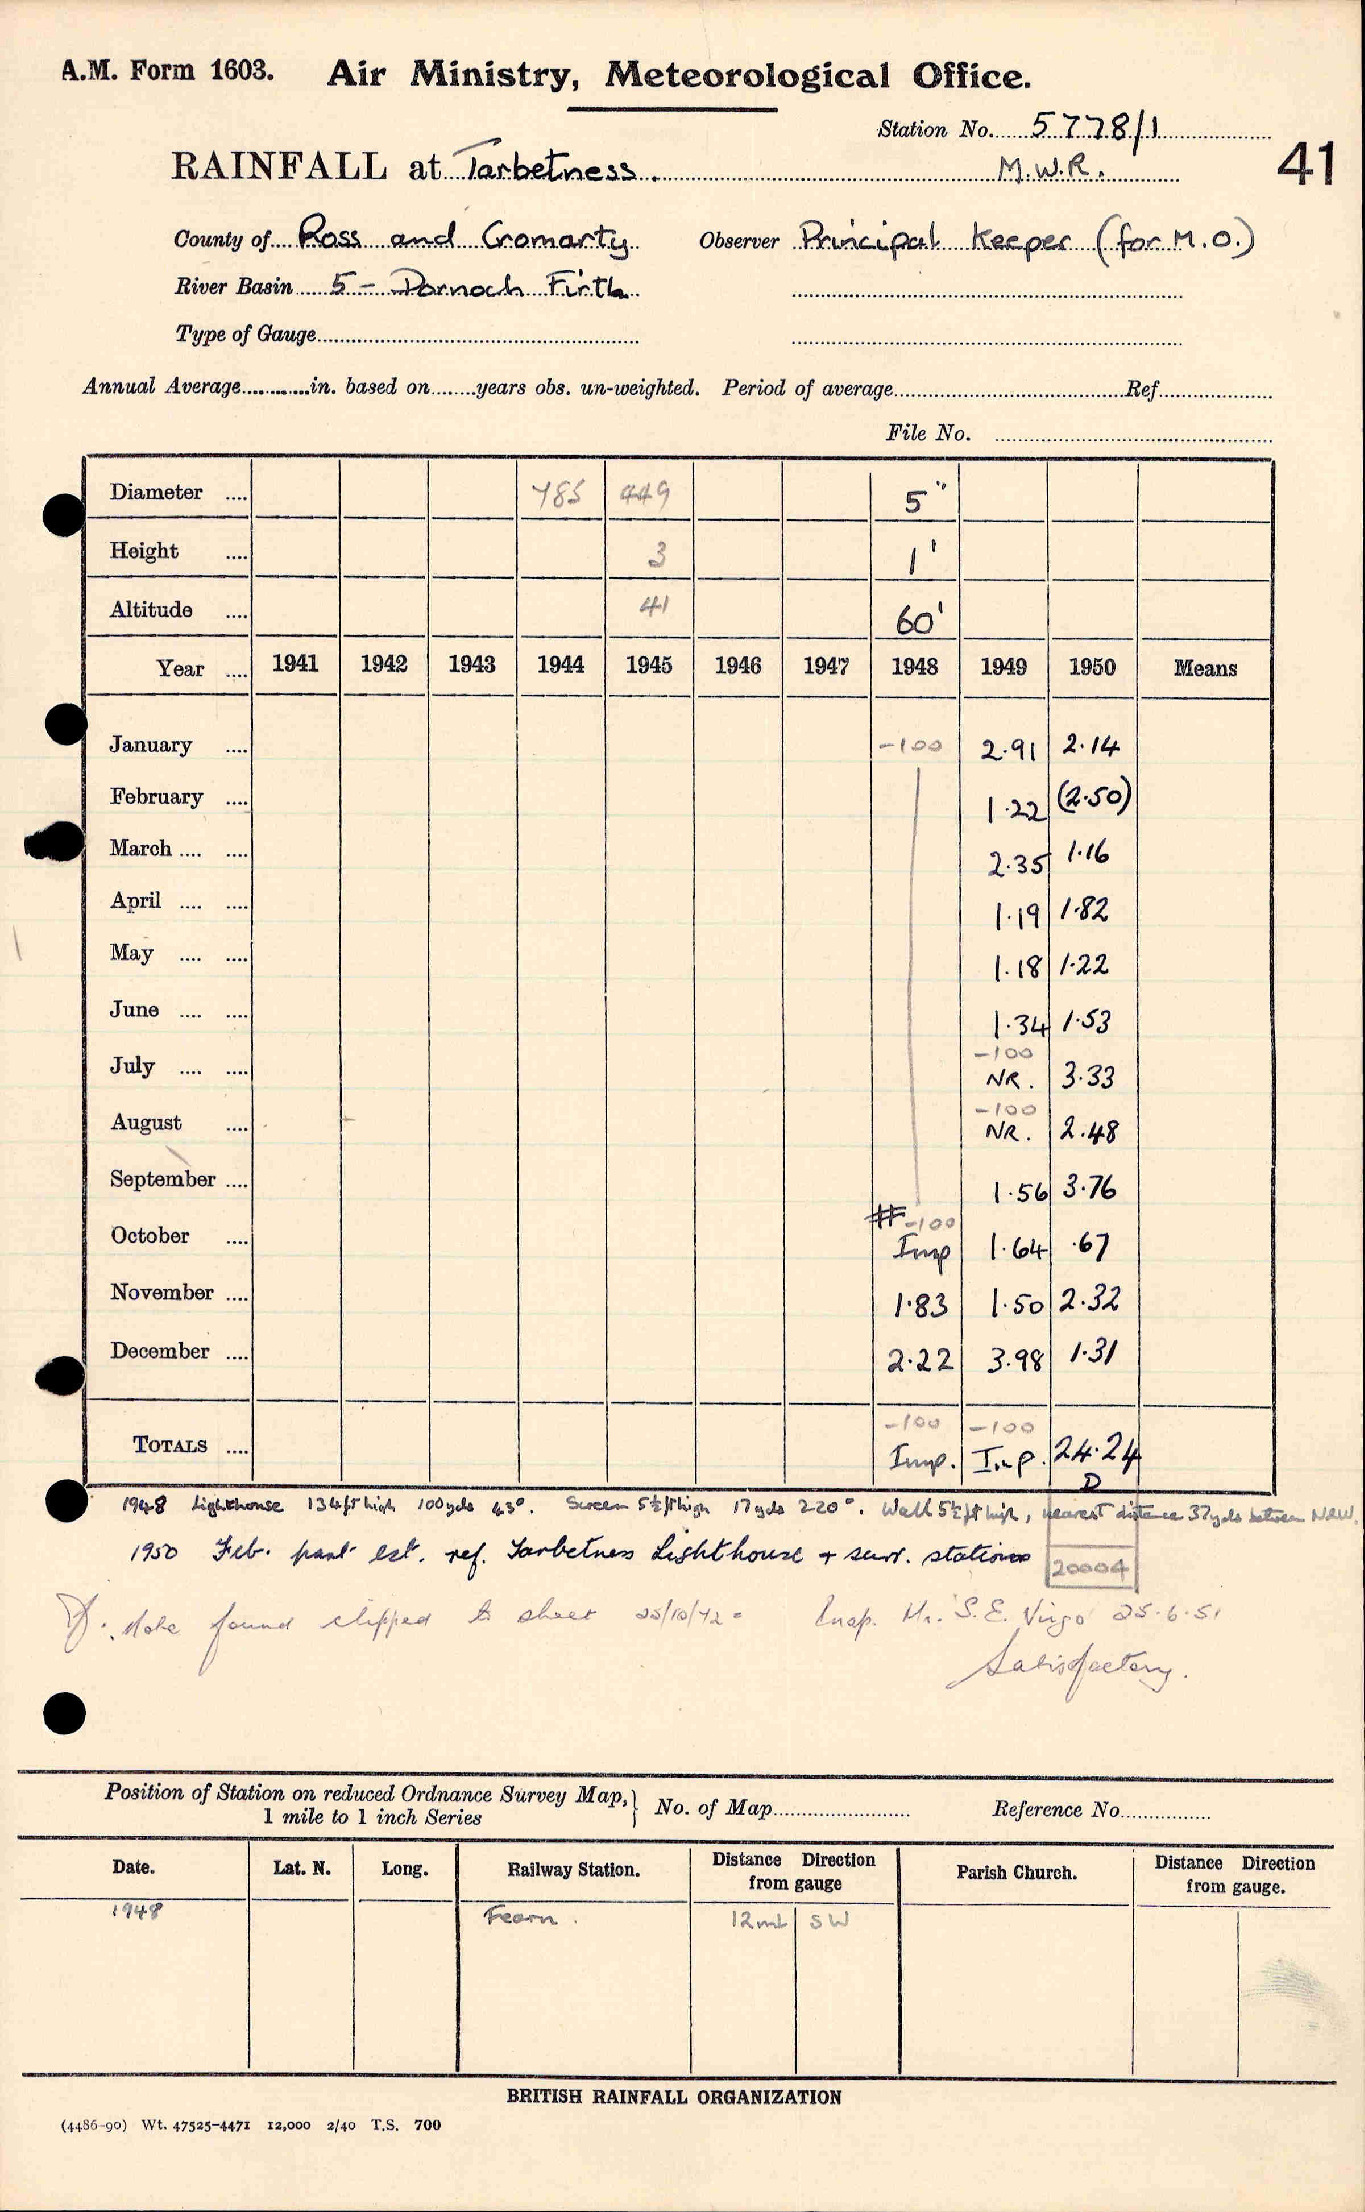 A.M. Form 1603. Air Ministry, Meteorological Office.
Station No. 5778/1
41
RAINFALL at Tarbetness. M.W.R.
County of Ross and Cromarty Observer Principal Keeper (for M.O.)
River Basin 5 - Dornoch Firth
Type of Gauge
Annual Average in. based on years obs. un-weighted. Period of average Ref
File No.
Diameter .... 785 449 5"
Height .... 3 1'
Altitude .... 41 60'
Year .... 1941 1942 1943 1944 1945 1946 1947 1948 1949 1950 Means
January .... -100 2.91 2.14
February .... 1.22 (2.50)
March .... .... 2.35 1.16
April .... .... 1.19 1.82
May .... .... 1.18 1.22
June .... .... 1.34 1.53
-100
July .... .... NR. 3.33
-100
August .... NR. 2.48
September .... 1.56 3.76
# -100
October .... Imp 1.64 .67
November .... 1.83 1.50 2.32
December .... 2.22 3.98 1.31
-100 -100
TOTALS .... Imp. Imp. 24.24
D
1948 Lighthouse 134ft high 100yds 43°. Screen 5½ft high 17yds 220°. Wall 5½ft high, nearest distance 37yds between N&W.
1950 Feb. part est. ref. Tarbetness Lighthouse + surr. stations 20004
Note found clipped to sheet Insp. Mr. S.E. Virgo 25.6.51
Satisfactory.
Position of Station on reduced Ordnance Survey Map, 1 mile to 1 inch Series } No. of Map Reference No.
Date. Lat. N. Long. Railway Station. Distance Direction from gauge Parish Church. Distance Direction from gauge.
1948 Fearn. 12ml SW
BRITISH RAINFALL ORGANIZATION
(4486-90) Wt. 47525-4471 12,000 2/40 T.S. 700